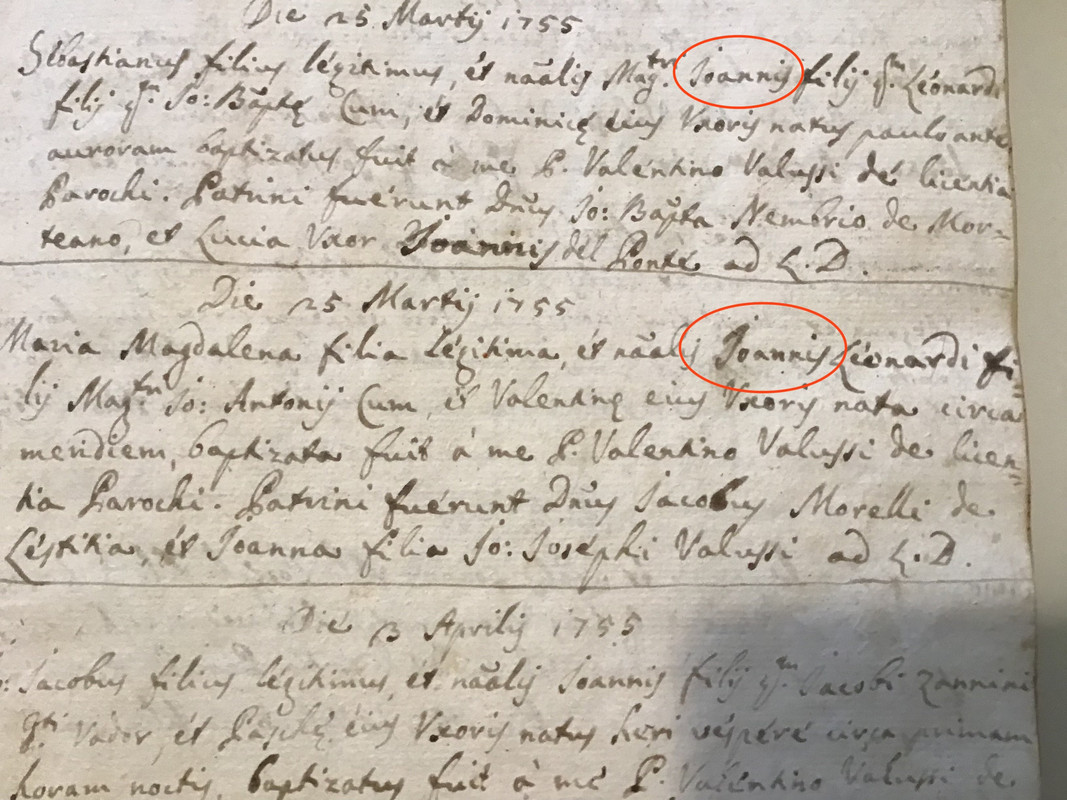 Die 25 Martij 1755
Sebastianus filius legitimus, et nãalis Mag.tri Joannis filij q.m Leonardi
filij q.m Jo: Baptę Cum, et Dominicę eius Uxoris natus paulo ante
auroram baptizatus fuit à me P. Valentino Valussi de licentia
Parochi. Patrini fuerunt Dnus Jo: Bapta Nembrio de Mor=
teano, et Lucia Uxor Joannis del Ponte ad L.D.
Die 25 Martij 1755
Maria Magdalena filia legitima, et nãalis Joannis Leonardi fi=
lij Mag.tri Jo: Antonij Cum, et Valentinę eius Uxoris nata circa
meridiem, baptizata fuit à me P. Valentino Valussi de licen=
tia Parochi. Patrini fuerunt Dnus Jacobus Morelli de
Lestitia, et Joanna filia Jo: Josephi Valussi ad L.D.
Die 3 Aprilis 1755
Jacobus filius legitimus, et nãalis Joannis filij q.m Jacobi Zannini
Vador, et Paschę eius Uxoris natus heri vespere circa primam
horam noctis, baptizatus fuit à me P. Valentino Valussi de